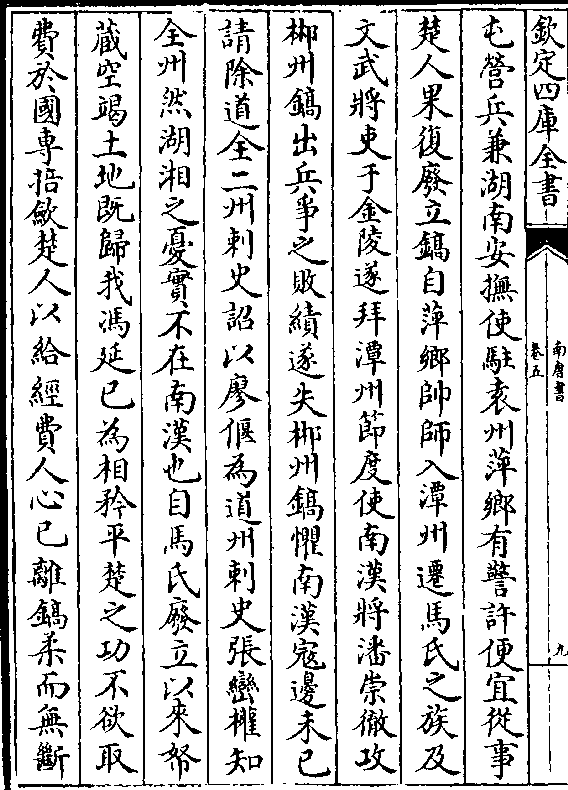 欽定四庫全書
南唐書
卷五
九
屯營兵兼湖南安撫使駐袁州萍鄉有警許便宜從事
楚人果復廢立鎬自萍鄉帥師入潭州遷馬氏之族及
文武將吏于金陵遂拜潭州節度使南漢將潘崇徹攻
郴州鎬出兵爭之敗績遂失郴州鎬懼南漢寇邊未已
請除道全二州刺史詔以廖偃為道州刺史張巒權知
全州然湖湘之憂實不在南漢也自馬氏廢立以來帑
藏空竭土地既歸我馮延巳為相矜平楚之功不欲取
費於國專掊斂楚人以給經費人心已離鎬柔而無斷